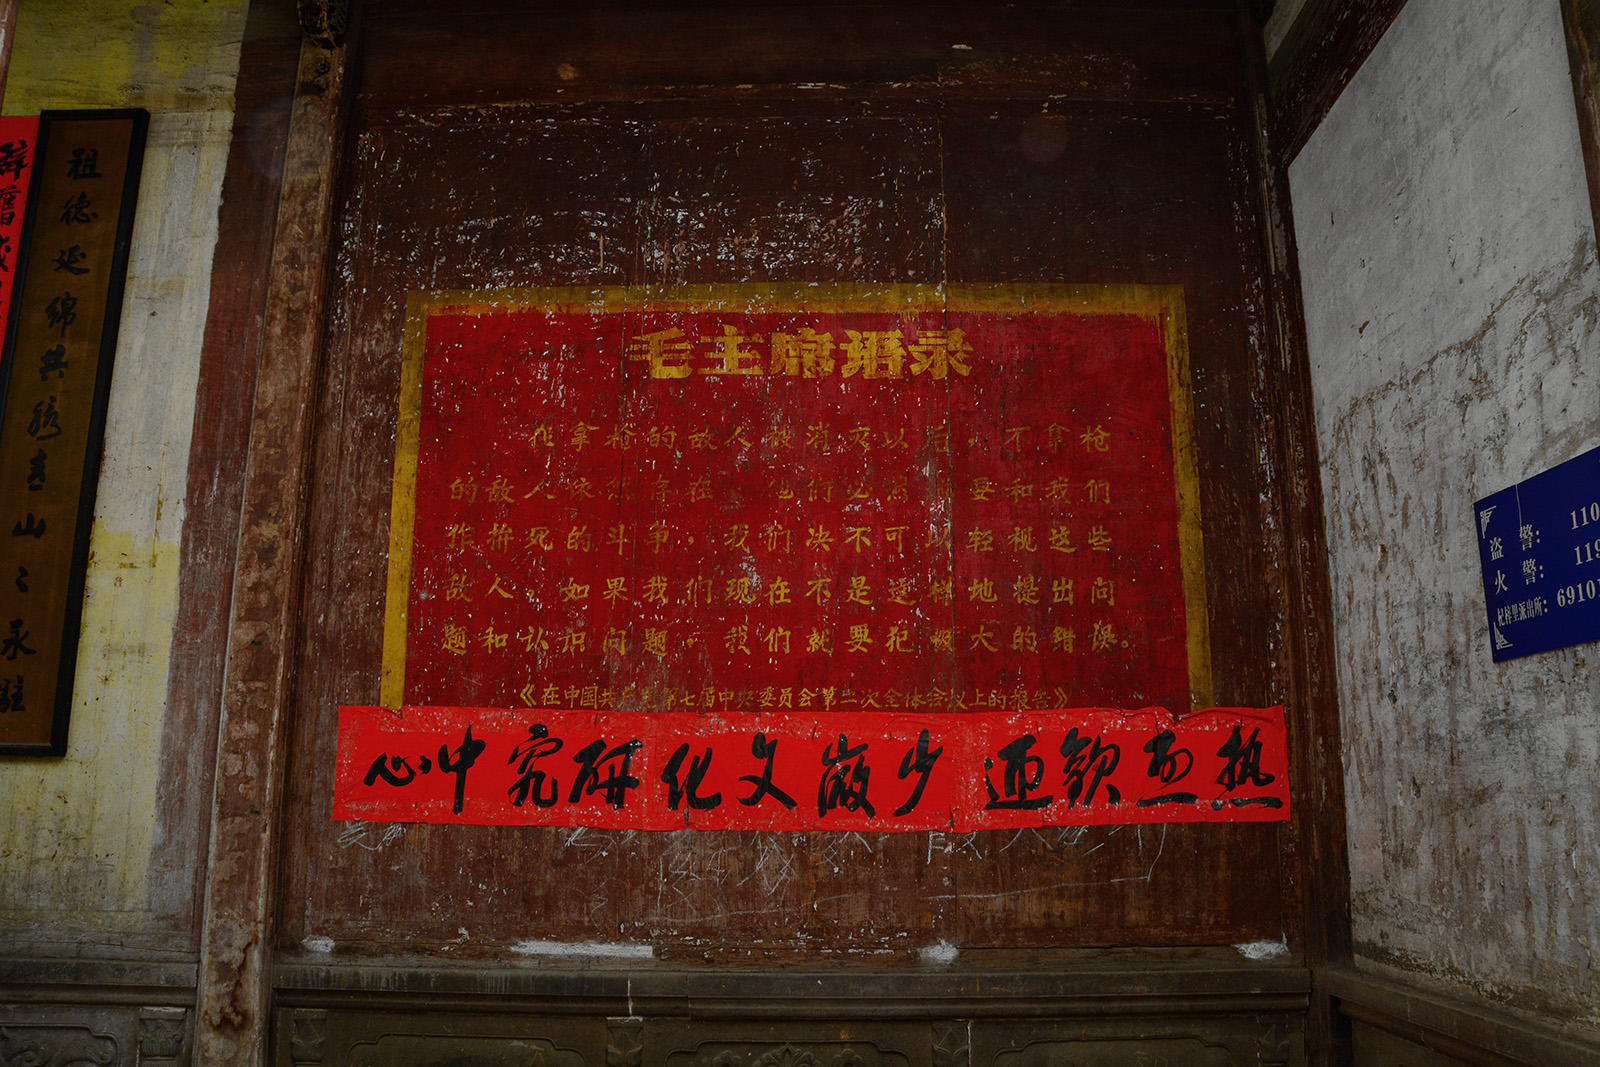 辭舊歲
祖德延绵共青山〻永駐
毛主席语录
在拿枪的敌人被消灭以后，不拿枪
的敌人依然存在，他们必然地要和我们
作拚死的斗争，我们决不可以轻视这些
敌人。如果我们现在不是这样地提出问
题和认识问题，我们就要犯极大的错误。
《在中国共产党第七届中央委员会第二次全体会议上的报告》
热烈欢迎 少微文化研究中心
盗 警：110
火 警：119
杞梓里派出所：6910